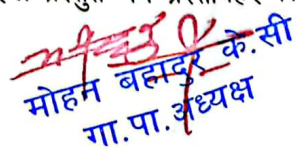 मोहन बहादुर के.सी
गा.पा.अध्यक्ष